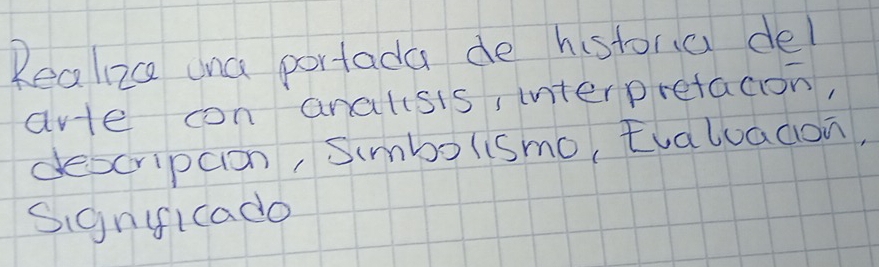 Realiza una portada de historia del
arte con analisis, interpretación,
descripcion, Simbolismo, Evaluación,
Significado